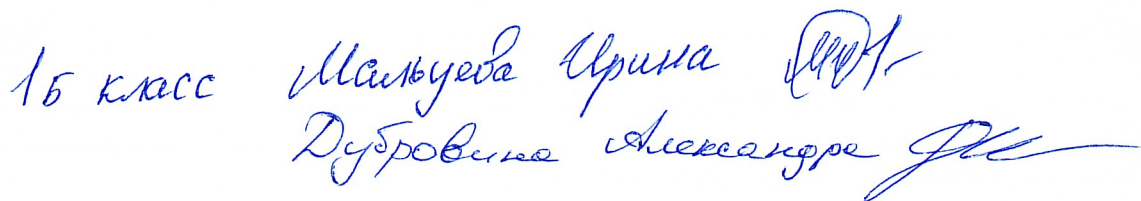 1Б класс Мальцева Ирина
Дубровина Александра